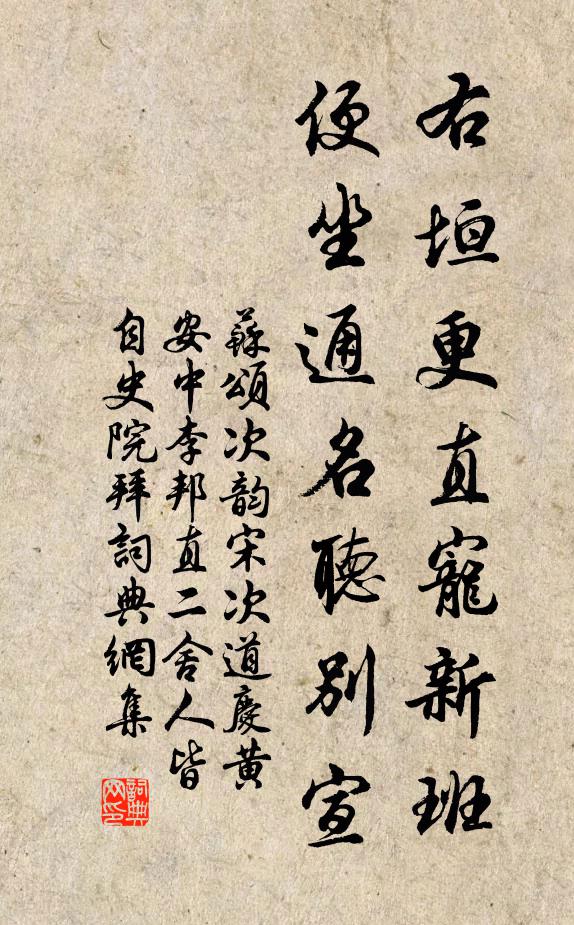 右垣更直寵新班
便坐通名聽別宣
蘇頌次韵宋次道慶黄
安中李邦直二舍人皆
自史院拜詞典網集
詞典網印